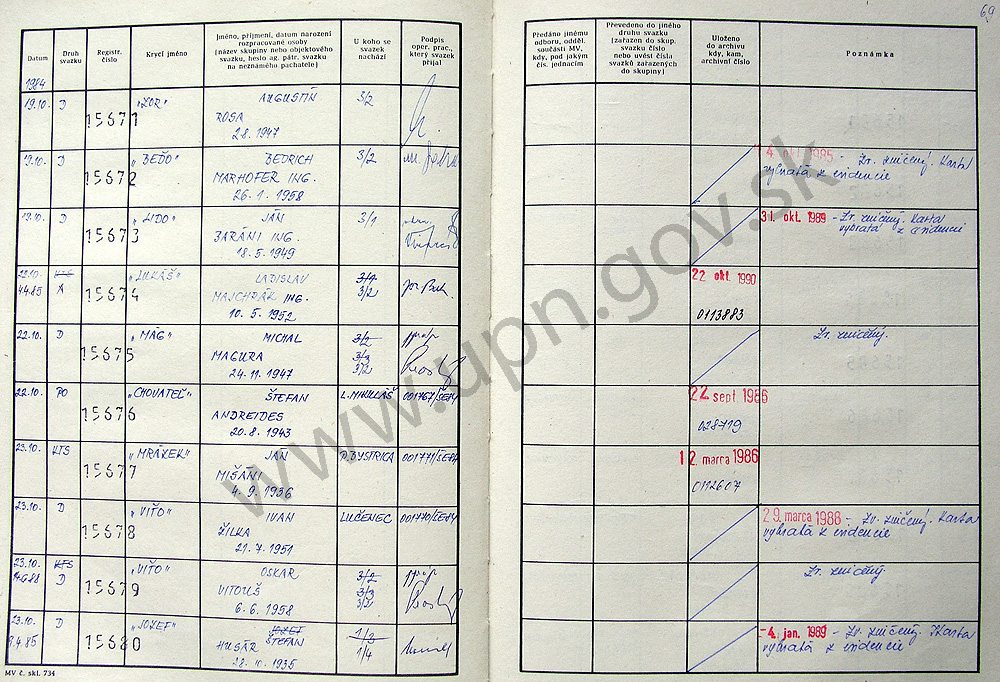 69
Datum
Druh svazku
Registr. číslo
Krycí jméno
Jméno, příjmení, datum narození
rozpracované osoby
(název skupiny nebo objektového
svazku, heslo ag. pátr. svazku
na neznámého pachatele)
U koho se
svazek
nachází
Podpis
oper. prac.,
který svazek
přijal
Předáno jinému
odboru, odděl.
součásti MV,
kdy, pod jakým
čís. jednacím
Převedeno do jiného
druhu svazku
(zařazen do skup.
svazku číslo
nebo uvést čísla
svazků zařazených
do skupiny)
Uloženo
do archivu
kdy, kam,
archivní číslo
Poznámka
1984
19.10. D 15671 "ZOR" AUGUSTÍN 3/2
ROSA
2.8.1947
19.10. D 15672 "BEĎO" BEDRICH 3/2
MARHOFER ING.
26.1.1958
4. okt. 1985 - Zv. zničený. Karta
vybratá z evidencie
19.10. D 15673 "LIDO" JÁN 3/1
BARÁNI ING.
18.5.1949
31. okt. 1989 - Zv. zničený. Karta
vybratá z evidencie
22.10. KTS 15674 "LUKÁŠ" LADISLAV 3/1
4.4.85 A MAJCHRÁK ING. 3/2
10.5.1952
22 okt 1990
0113883
22.10. D 15675 "MÁG" MICHAL 3/2
MAGURA 3/3
24.11.1947 3/2
Zv. zničený.
22.10. PO 15676 "CHOVATEĽ" ŠTEFAN L. MIKULÁŠ
ANDREIDES
20.8.1943
22. sept. 1986
028719
23.10. KTS 15677 "MRÁZEK" JÁN B. BYSTRICA
MIŠÁNI
4.9.1936
12. marca 1986
0112607
23.10. D 15678 "VIŤO" IVAN LUČENEC
ŽILKA
21.7.1951
29. marca 1988 - Zv. zničený. Karta
vybratá z evidencie
23.10. KTS 15679 "VIŤO" OSKAR 3/2
D VITOUŠ 3/3
6.6.1958 3/2
Zv. zničený.
23.10. D 15680 "JOZEF" JOZEF 1/3
ŠTEFAN
9.4.85 HUSÁR 1/4
28.10.1935
-4. jan. 1989 - Zv. zničený. Karta
vybratá z evidencie
MV č. skl. 734
www.upn.gov.sk